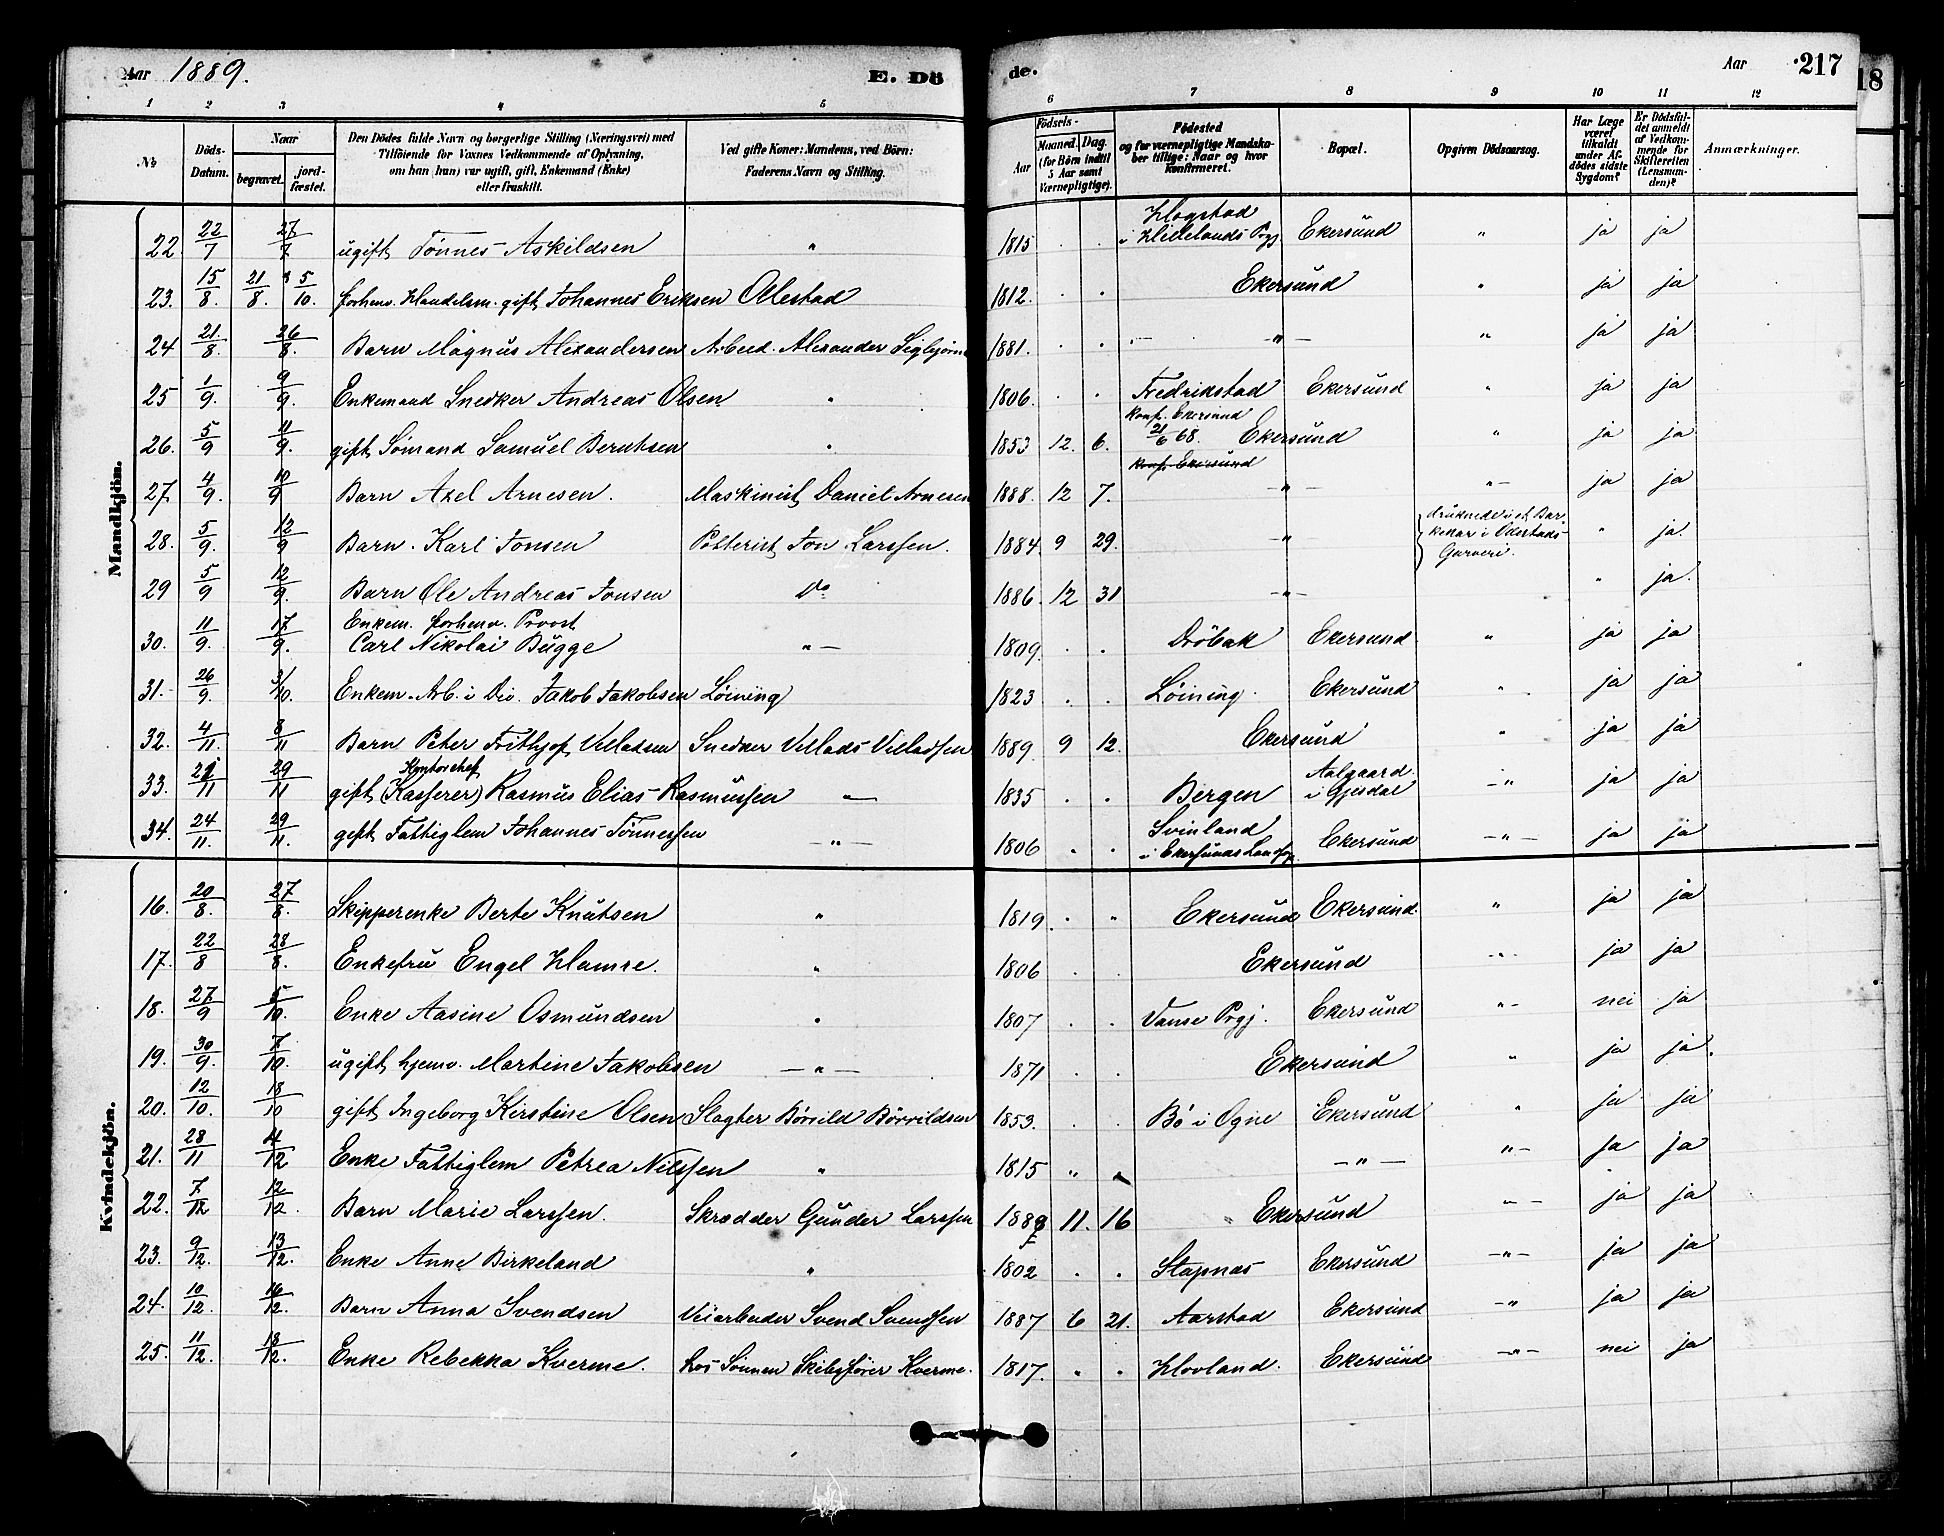 Aar 1889. E. Dö de. Aar 217
18
1 2 3 4 5 6 7 8 9 10 11 12
No Döds-Datum. Naar begravet. jordfæstet. Den Dödes fulde Navn og borgerlige Stilling (Næringsvei) med Tilföiende for Voxnes Vedkommende af Oplysning, om han (hun) var ugift, gift, Enkemand (Enke) eller fraskilt. Ved gifte Koner: Mandens, ved Börn: Faderens Navn og Stilling. Födsels- Aar Maaned. Dag. (for Börn indtil 5 Aar samt Værnepligtige). Födested og for værnepligtige Mandskaber tillige: Naar og hvor konfirmeret. Bopæl. Opgiven Dödsaarsag. Har Læge været tilkaldt under Afdödes sidste Sygdom? Er Dödsfaldet anmeldt af Vedkommende for Skifteretten (Lensmanden)? Anmærkninger.
Mandkjön.
22 22/7 27/7 ugift Tönnes Askildsen " 1815 . . Hogstad i Hittelands Prgj Ekersund " ja ja
23. 15/8. 21/8. 5/10. forhenv. Handelsm. gift Johannes Eriksen Ollestad 1812. . . Ekersund " ja ja
24 21/8. 26/8. Barn Magnus Alexandersen Arbeid. Alexander Sigbjörn 1881. . . — " — " ja ja
25 1/9. 9/9. Enkemand Snedker Andreas Olsen " 1806. . . Fredrikstad Ekersund " ja ja
26. 5/9 11/9. gift Sömand Samuel Berntsen " 1853 12. 6. Konf. Ekersund 21/6 68. Ekersund " ja ja
27. 4/9. 10/9 Barn Axel Arnesen. Maskinist Daniel Arnesen 1888. 12 7. Konf. Ekersund — " — " — ja ja
28. 5/9. 12/9 Barn Karl Jonsen Potterist Jon Larssen. 1884 9 29. — " druknede i et Barkekar i Olestads Garveri. " ja.
29 5/9 12/9. Barn Ole Andreas Jonsen Do 1886. 12 31 — " — " ja.
30. 11/9. 17/9. Enkem. forhenv. Provst Carl Nikolai Bugge " — 1809. . . Dröbak Ekersund " ja ja
31. 26/9. 3/10. Enkem. Arb. i Div. Jakob Jakobsen Löining 1823 . . Löining. Ekersund " ja ja
32. 4/11. 8/11 Barn Peter Frithjof Villadsen Snedker Villads Villadsen 1889 9 12. Ekersund " ja ja
33. 11 29/11 gift Kontorchef (Kasserer) Rasmus Elias Rasmussen — 1835 . . Bergen Aalgaard i Gjesdal — " ja ja
34. 24/11. 29/11. gift Fattiglem Johannes Tönnessen — " — 1806 . . Svinland i Ekersunds Landsog Ekersund — " — ja ja
Kvindekjön.
16. 20/8. 27/8. Skipperenke Berte Knutsen " 1819. . " Ekersund Ekersund. " ja ja
17. 22/8 28/8. Enkefru Engel Hamre. " 1806 . . Ekersund " ja ja
18. 27/9 5/10. Enke Aasine Osmundsen " 1807 . . Vanse Prgj. Ekersund " — nei ja
19. 30/9. 7/10. ugift hjemv. Martine Jakobsen — " — 1871 . . Ekersund " ja ja.
20. 12/10. 18/10 gift Ingeborg Kirstine Olsen Slagter Börrild Börrildsen 1853. . . Bö i Ogne Ekersund " ja ja
21. 28/11 4/12 Enke Fattiglem Petrea Nilssen " 1815 " " — " — " — ja ja
22. 7/12 12/12. Barn Marie Larssen. Skrædder Gunder Larssen 1888 11. 16 " Ekersund " — ja ja
23. 9/12. 13/12. Enke Anne Birkeland " 1802 . . Stapnæs Ekersund — " — ja ja
24. 10/12. 16/12. Barn Anna Svendsen Veiarbeider Svend Svendsen 1887 6 21. Aarstad Ekersund — " ja ja
25. 11/12. 18/12. Enke Rebekka Kverme. hos Sönnen Skibsförer Kverme. 1817. " " Hovland. Ekersund — " — nei ja